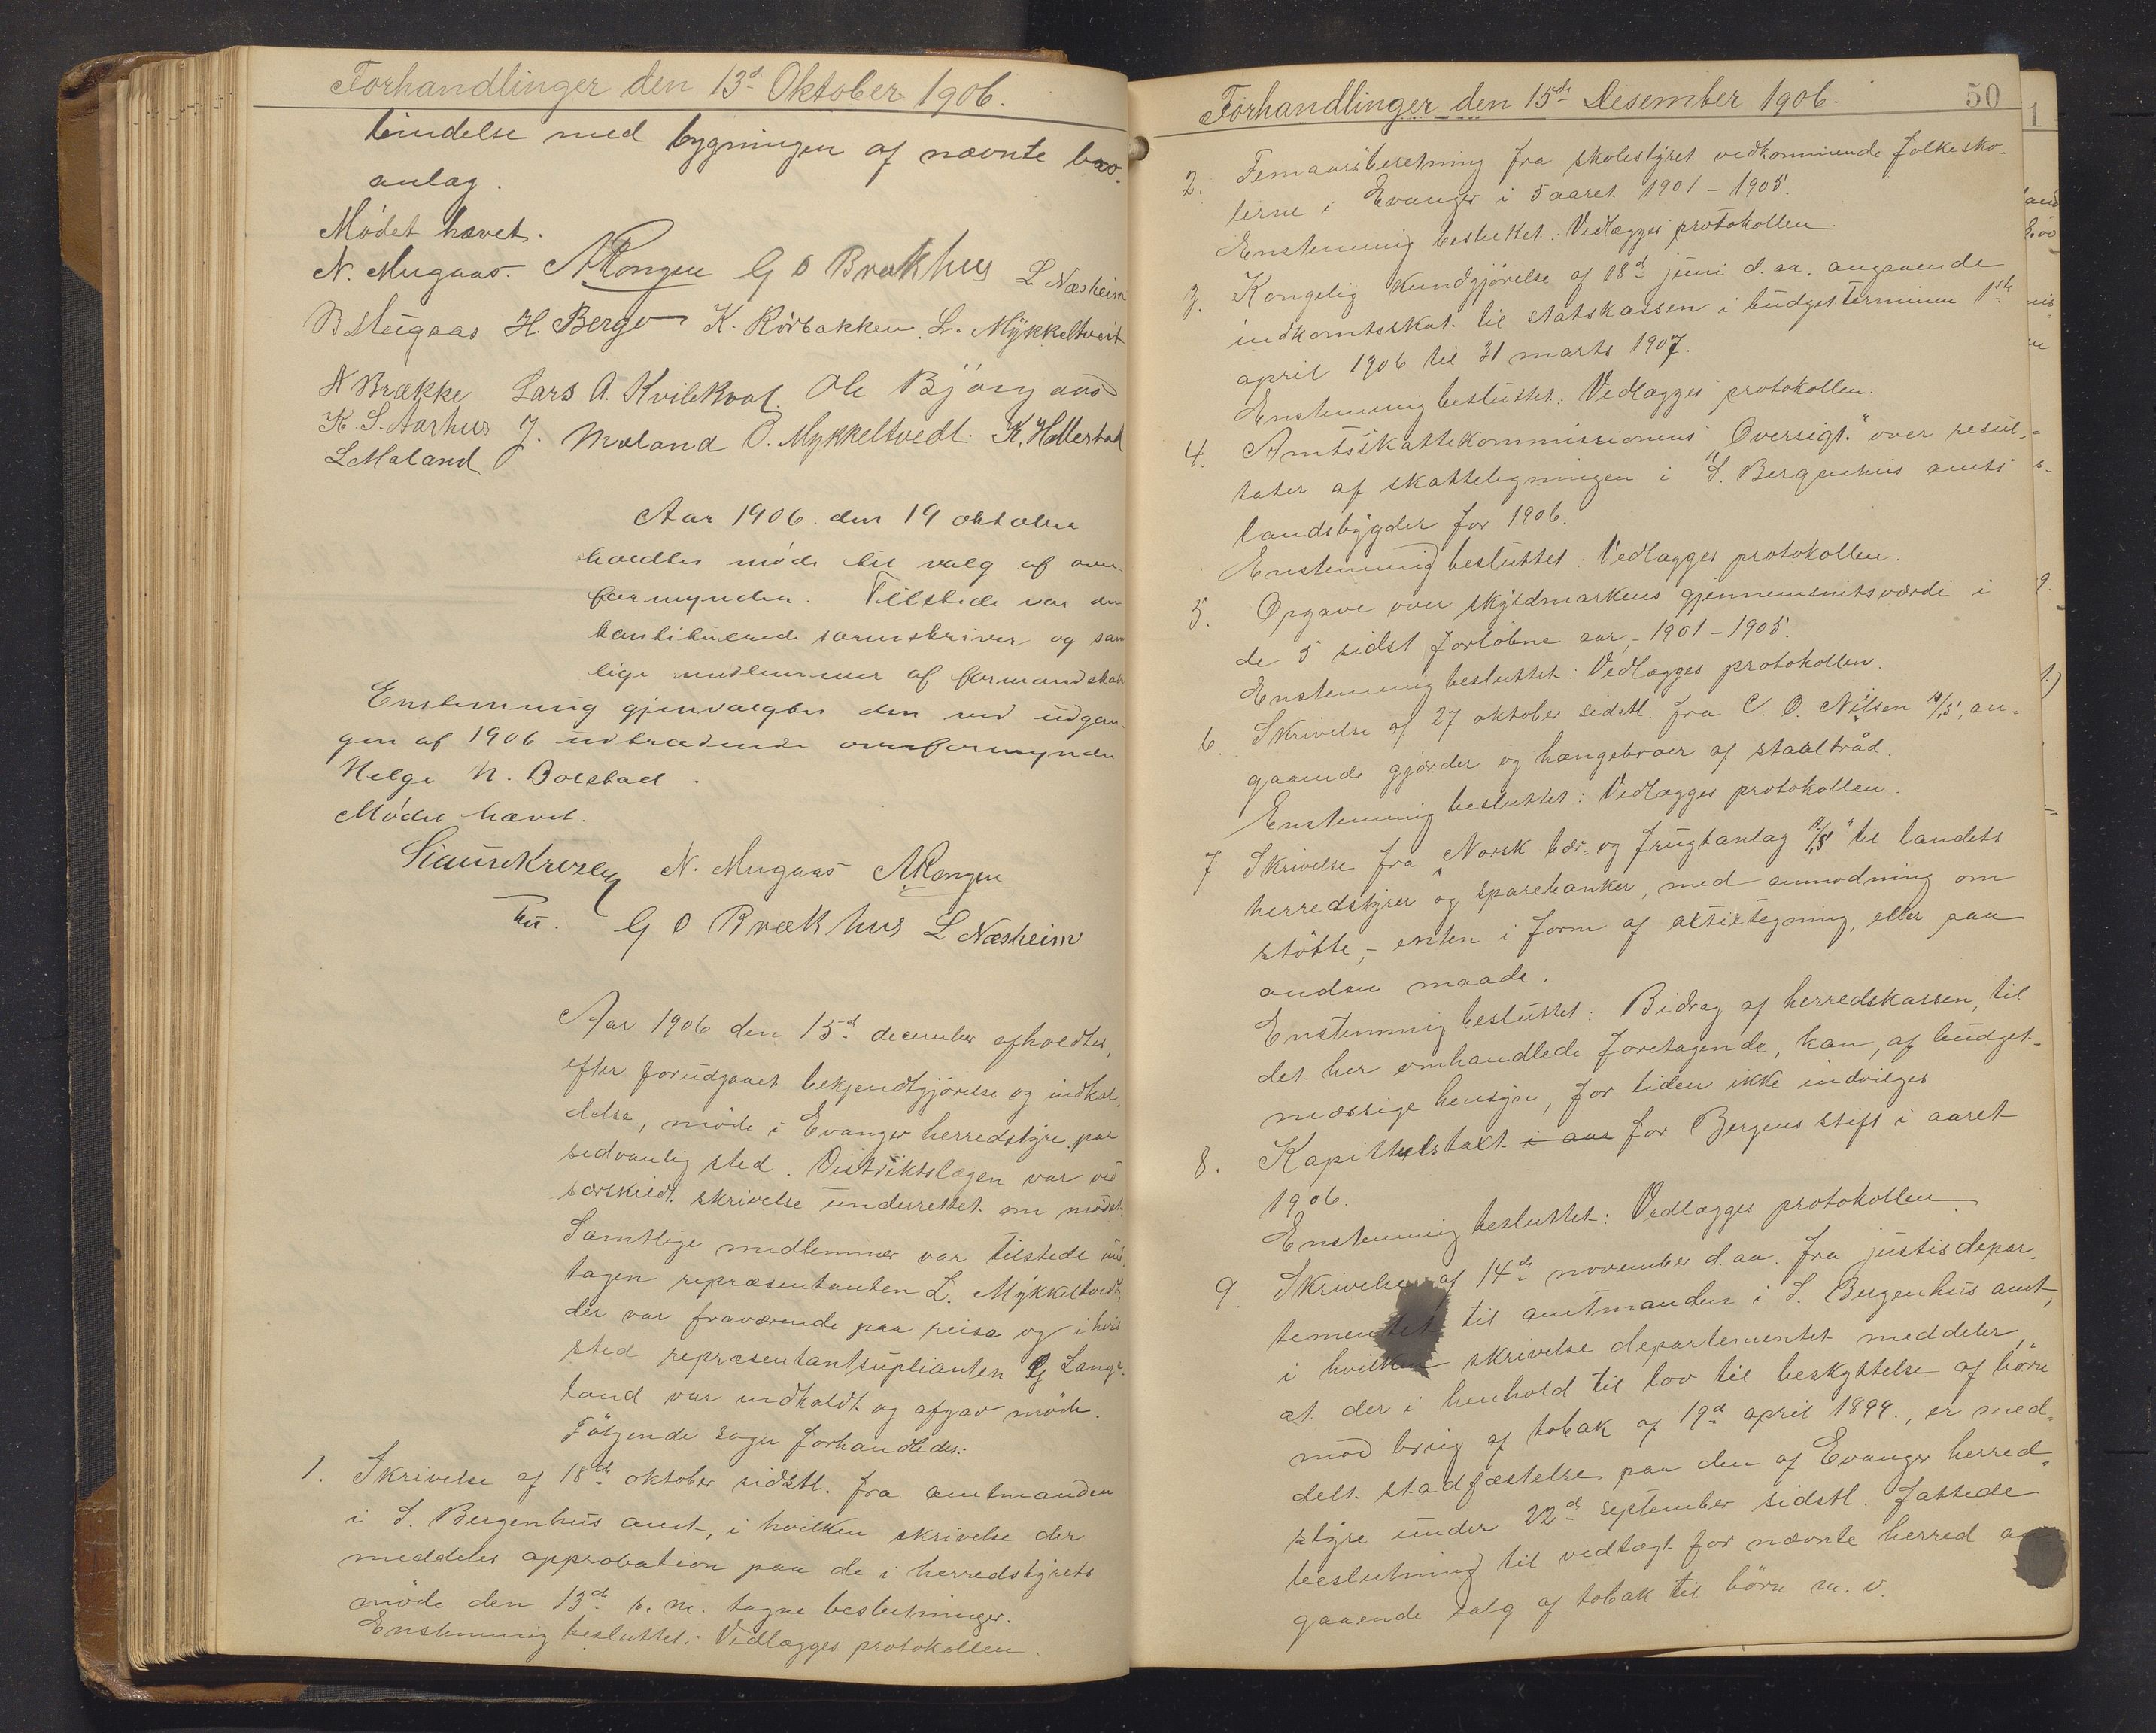 Forhandlinger den 13de Oktober 1906.
bindelse med bygningen af nævnte bro-
anlæg.
Mødet hævet.
N. Mugaas. A Rongen G O Brækhus L Næsheim
B Mugaas H. Berge K. Rørbakken. L. Mykkeltveit
N Brække Lars A. Kvilekval. Ole Bjørgaas
K. S. Aarhus J. Mæland O. Mykkeltvedt. K. Hallestad
L Mæland
Aar 1906 den 19 oktober
holdtes møde til valg af over-
formynder. Tilstede var den
konstituerede sorenskriver og sam
lige medlemmer af formandskab
Enstemmig gjenvalgtes den ved udgan-
gen af 1906 udtrædende overformynder
Helge N. Bolstad.
Mødet hævet.
N. Mugaas A Rongen
G O Brækhus L Næsheim
Aar 1906 den 15de december afholdtes,
efter forudgaaet bekjendtgjørelse og indkal-
delse, møde i Evanger herredstyre, paa
sedvanlig sted. Distriktslægen var ved
særskildt skrivelse underrettet om mødet.
Samtlige medlemmer var tilstede und-
tagen repræsentanten L. Mykkeltvedt,
der var fraværende paa reise og i hvis
sted repræsentantsuplianten G Lang-
land var indkaldt og afgav møde.
Følgende sager forhandledes:
1. Skrivelse af 18de oktober sidstl. fra amtmanden
i S. Bergenhus amt, i hvilken skrivelse der
meddeles approbation paa de i herredstyrets
møde den 13de s. m. tagne beslutninger.
Enstemmig besluttet: Vedlægges protokollen.
Forhandlinger den 15de Desember 1906. 50
2. Femaarsberetning fra skolestyret vedkommende folkesko-
lerne i Evanger i 5 aaret 1901 – 1905.
Enstemmig besluttet: Vedlægges protokollen.
3. Kongelig kundgjørelse af 18de juni d. aa. angaaende
indkomtsskat til statskassen i budgetterminen 1ste
april 1906 til 31 marts 1907.
Enstemmig besluttet: Vedlægges protokollen.
4. Amtsskattekommissionens "Oversigt" over resul-
tater af skatteligningen i S. Bergenhus amts
landsbygder for 1906.
Enstemmig besluttet: Vedlægges protokollen.
5. Opgave over skyldmarkens gjennemsnitsværdi i
de 5 sidst forløbne aar, – 1901 – 1905.
Enstemmig besluttet: Vedlægges protokollen.
6. Skrivelse af 27 oktober sidstl. fra C. O. Nilsen A/S, an-
gaaende gjærder og hængebroer af staaltråd.
Enstemmig besluttet: Vedlægges protokollen.
7 Skrivelse fra "Norsk bær- og frugtanlæg A/S" til landets
herredstyrer og sparebanker, med anmodning om
støtte, – enten i form af aktietegning, eller paa
anden maade.
Enstemmig besluttet: Bidrag af herredskassen, til
det her omhandlede foretagende, kan, af budget-
mæssige hensyn, for tiden ikke indvilges
8. Kapitelstakt i aar for Bergens stift i aaret
1906.
Enstemmig besluttet: Vedlægges protokollen.
9. Skrivelse af 14de november d. aa. fra justisdepar-
tementet til amtmanden i S. Bergenhus amt,
i hvilken skrivelse departementet meddeler,
at der i henhold til lov til beskyttelse af børn
mod brug af tobak af 19de april 1899., er med-
delt stadfæstelse paa den af Evanger herred-
styre under 22de september sidstl. fattede
beslutning til vedtægt for nævnte herred an
gaaende salg af tobak til børn m. v.